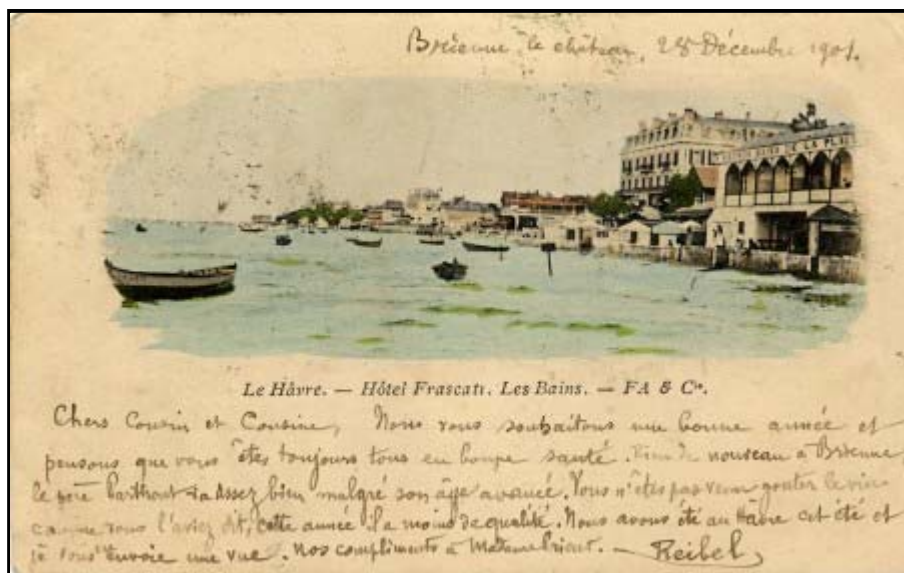 Brienne le château, 28 Décembre 1901.
DE LA PLA
Le Hâvre. — Hôtel Frascati. Les Bains. — FA & Cie.
Chers Cousin et Cousine, Nous vous souhaitons une bonne année et
pensons que vous êtes toujours tous en bonne santé. Rien de nouveau à Brienne,
le père va assez bien malgré son âge avancé. Vous n'êtes pas venu gouter le vin
comme vous l'aviez dit, cette année il a moins de qualité. Nous avons été au Hâvre cet été et
je vous envoie une vue. Nos compliments à Madame — Reibel